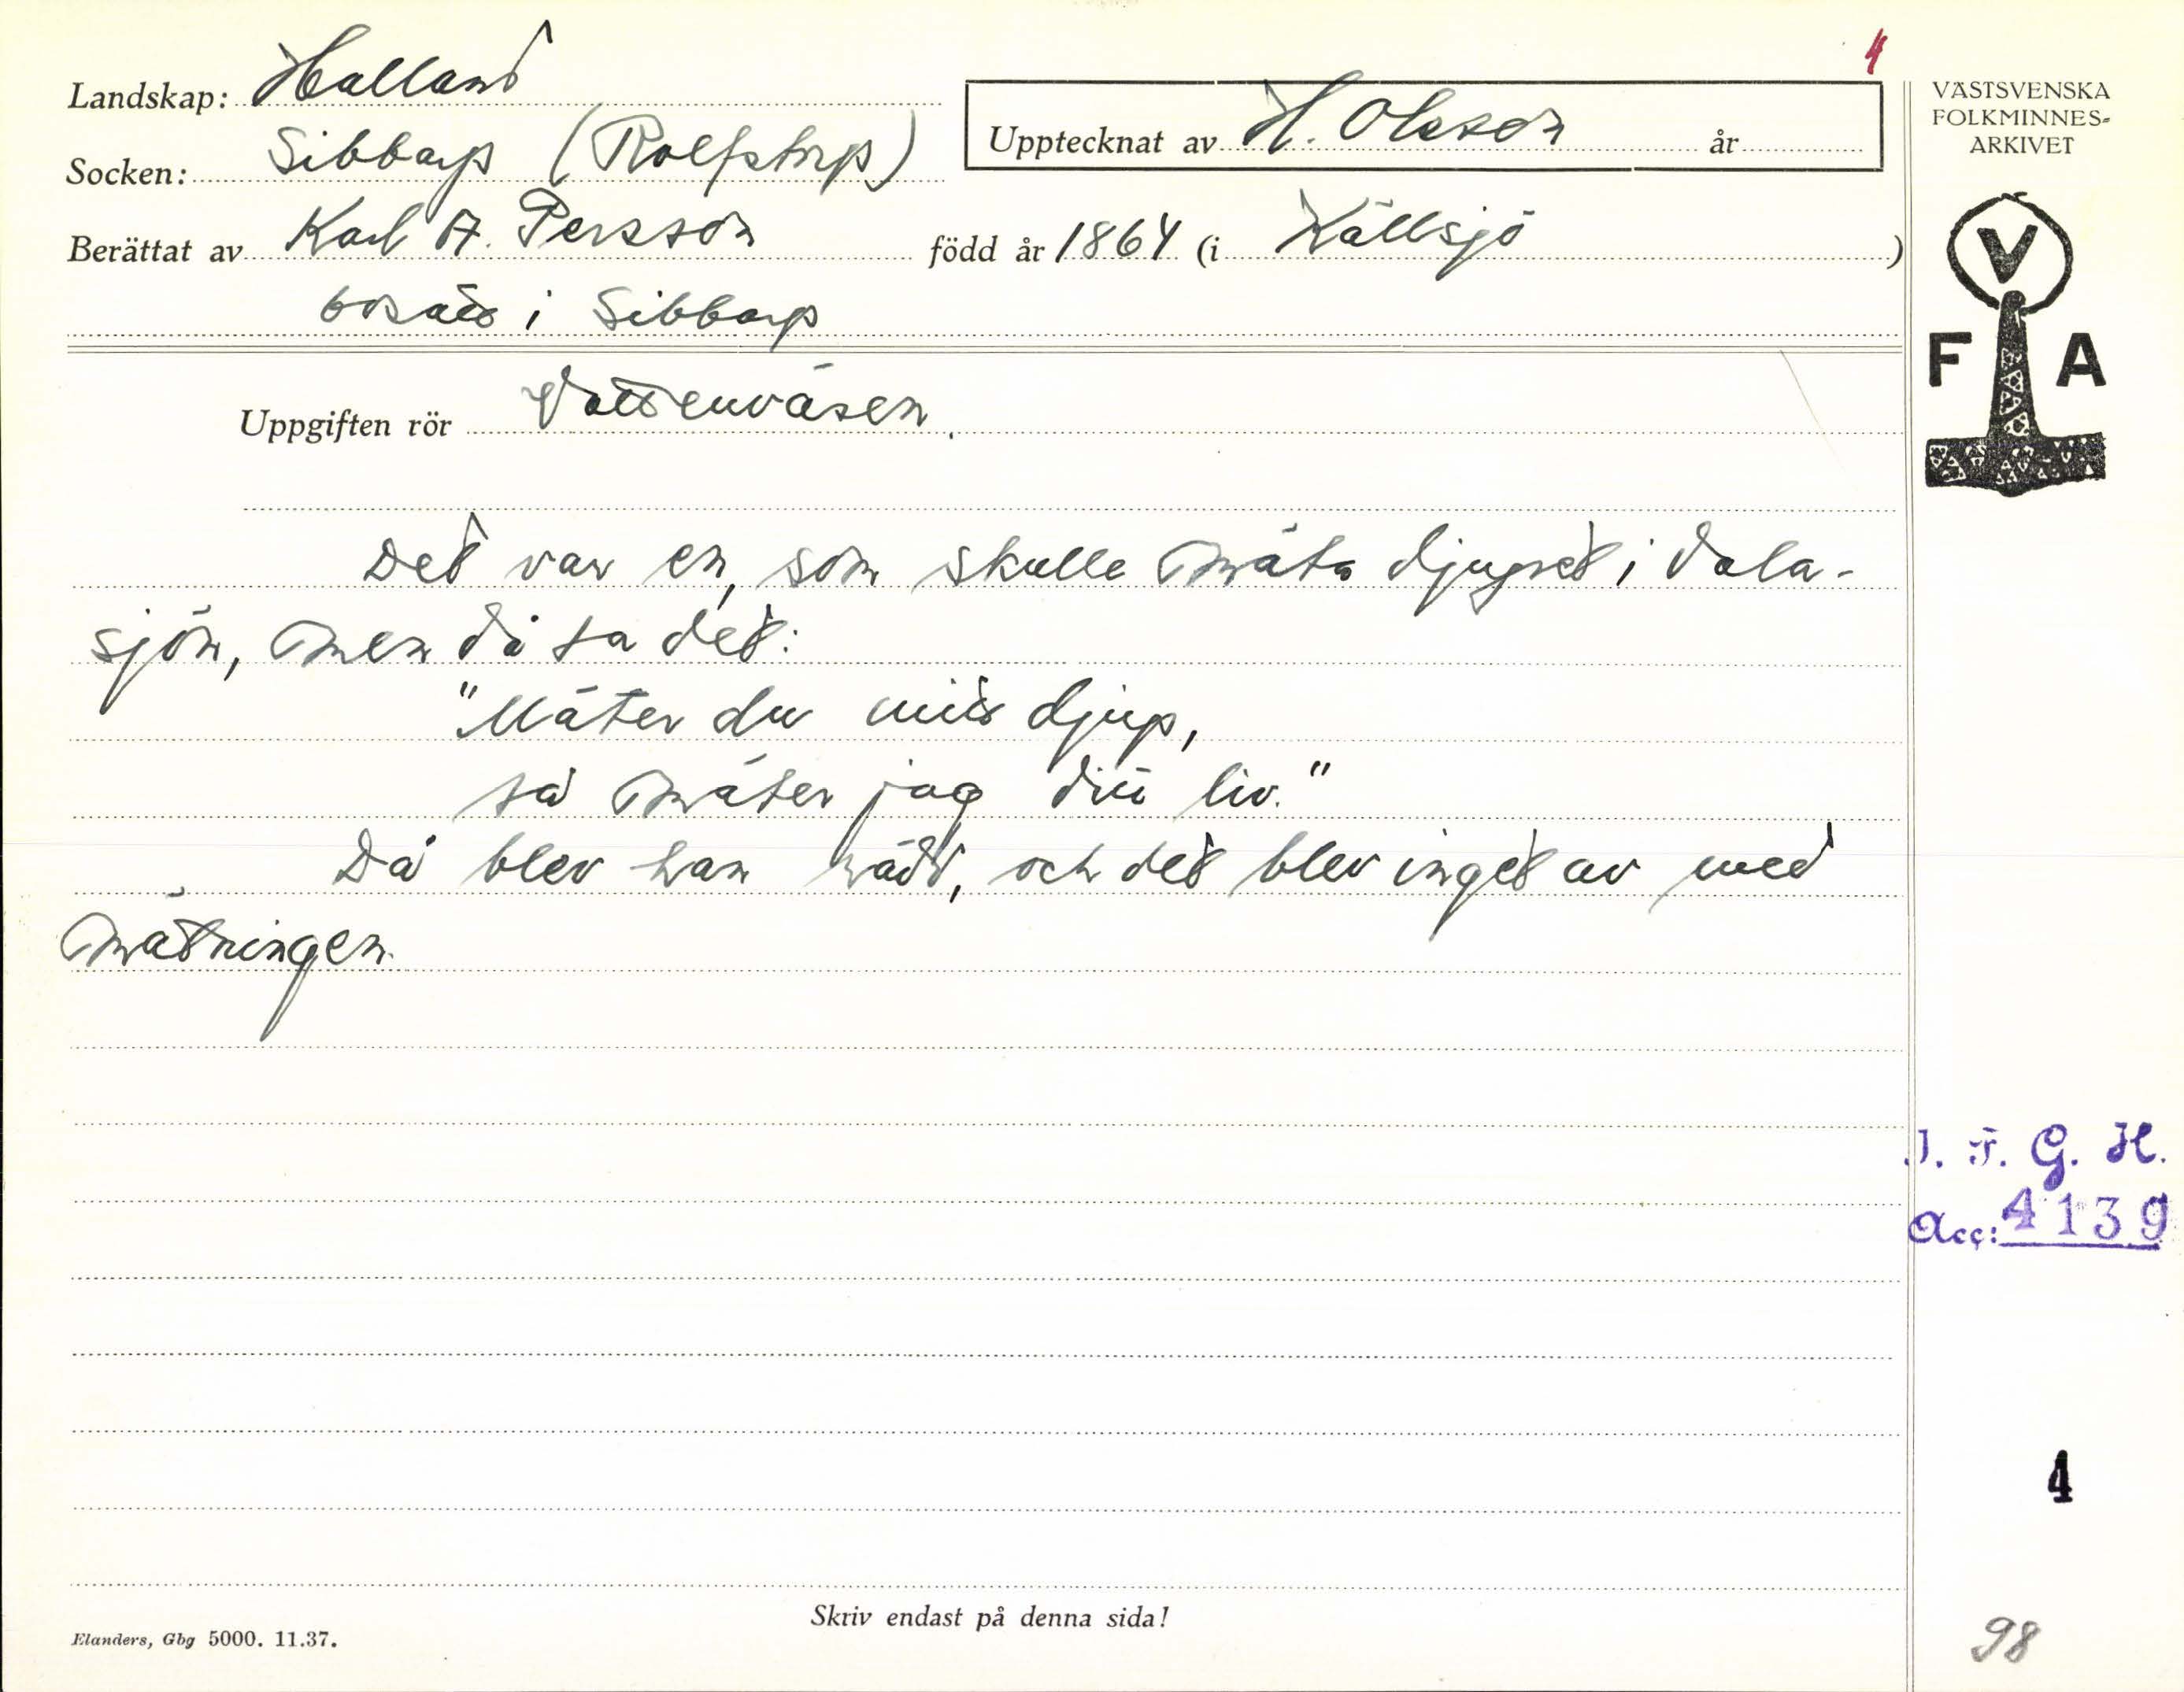 4
Landskap: Halland
Upptecknat av H. Olsson år
Socken: Sibbarp (Rolfstorp)
Berättat av Karl A. Persson född år 1864 (i Källsjö )
bosatt i Sibbarp
Uppgiften rör Vattenväsen.
Det var en, som skulle mäta djupet i Vala-
sjön, men då sa det:
"Mäter du mitt djup,
så mäter jag ditt liv."
Då blev han rädd, och det blev inget av med
mätningen.
Skriv endast på denna sida!
Elanders, Gbg 5000. 11.37.
VÄSTSVENSKA
FOLKMINNES-
ARKIVET
V
F A
I. F. G. H.
Acc: 4139
4
98